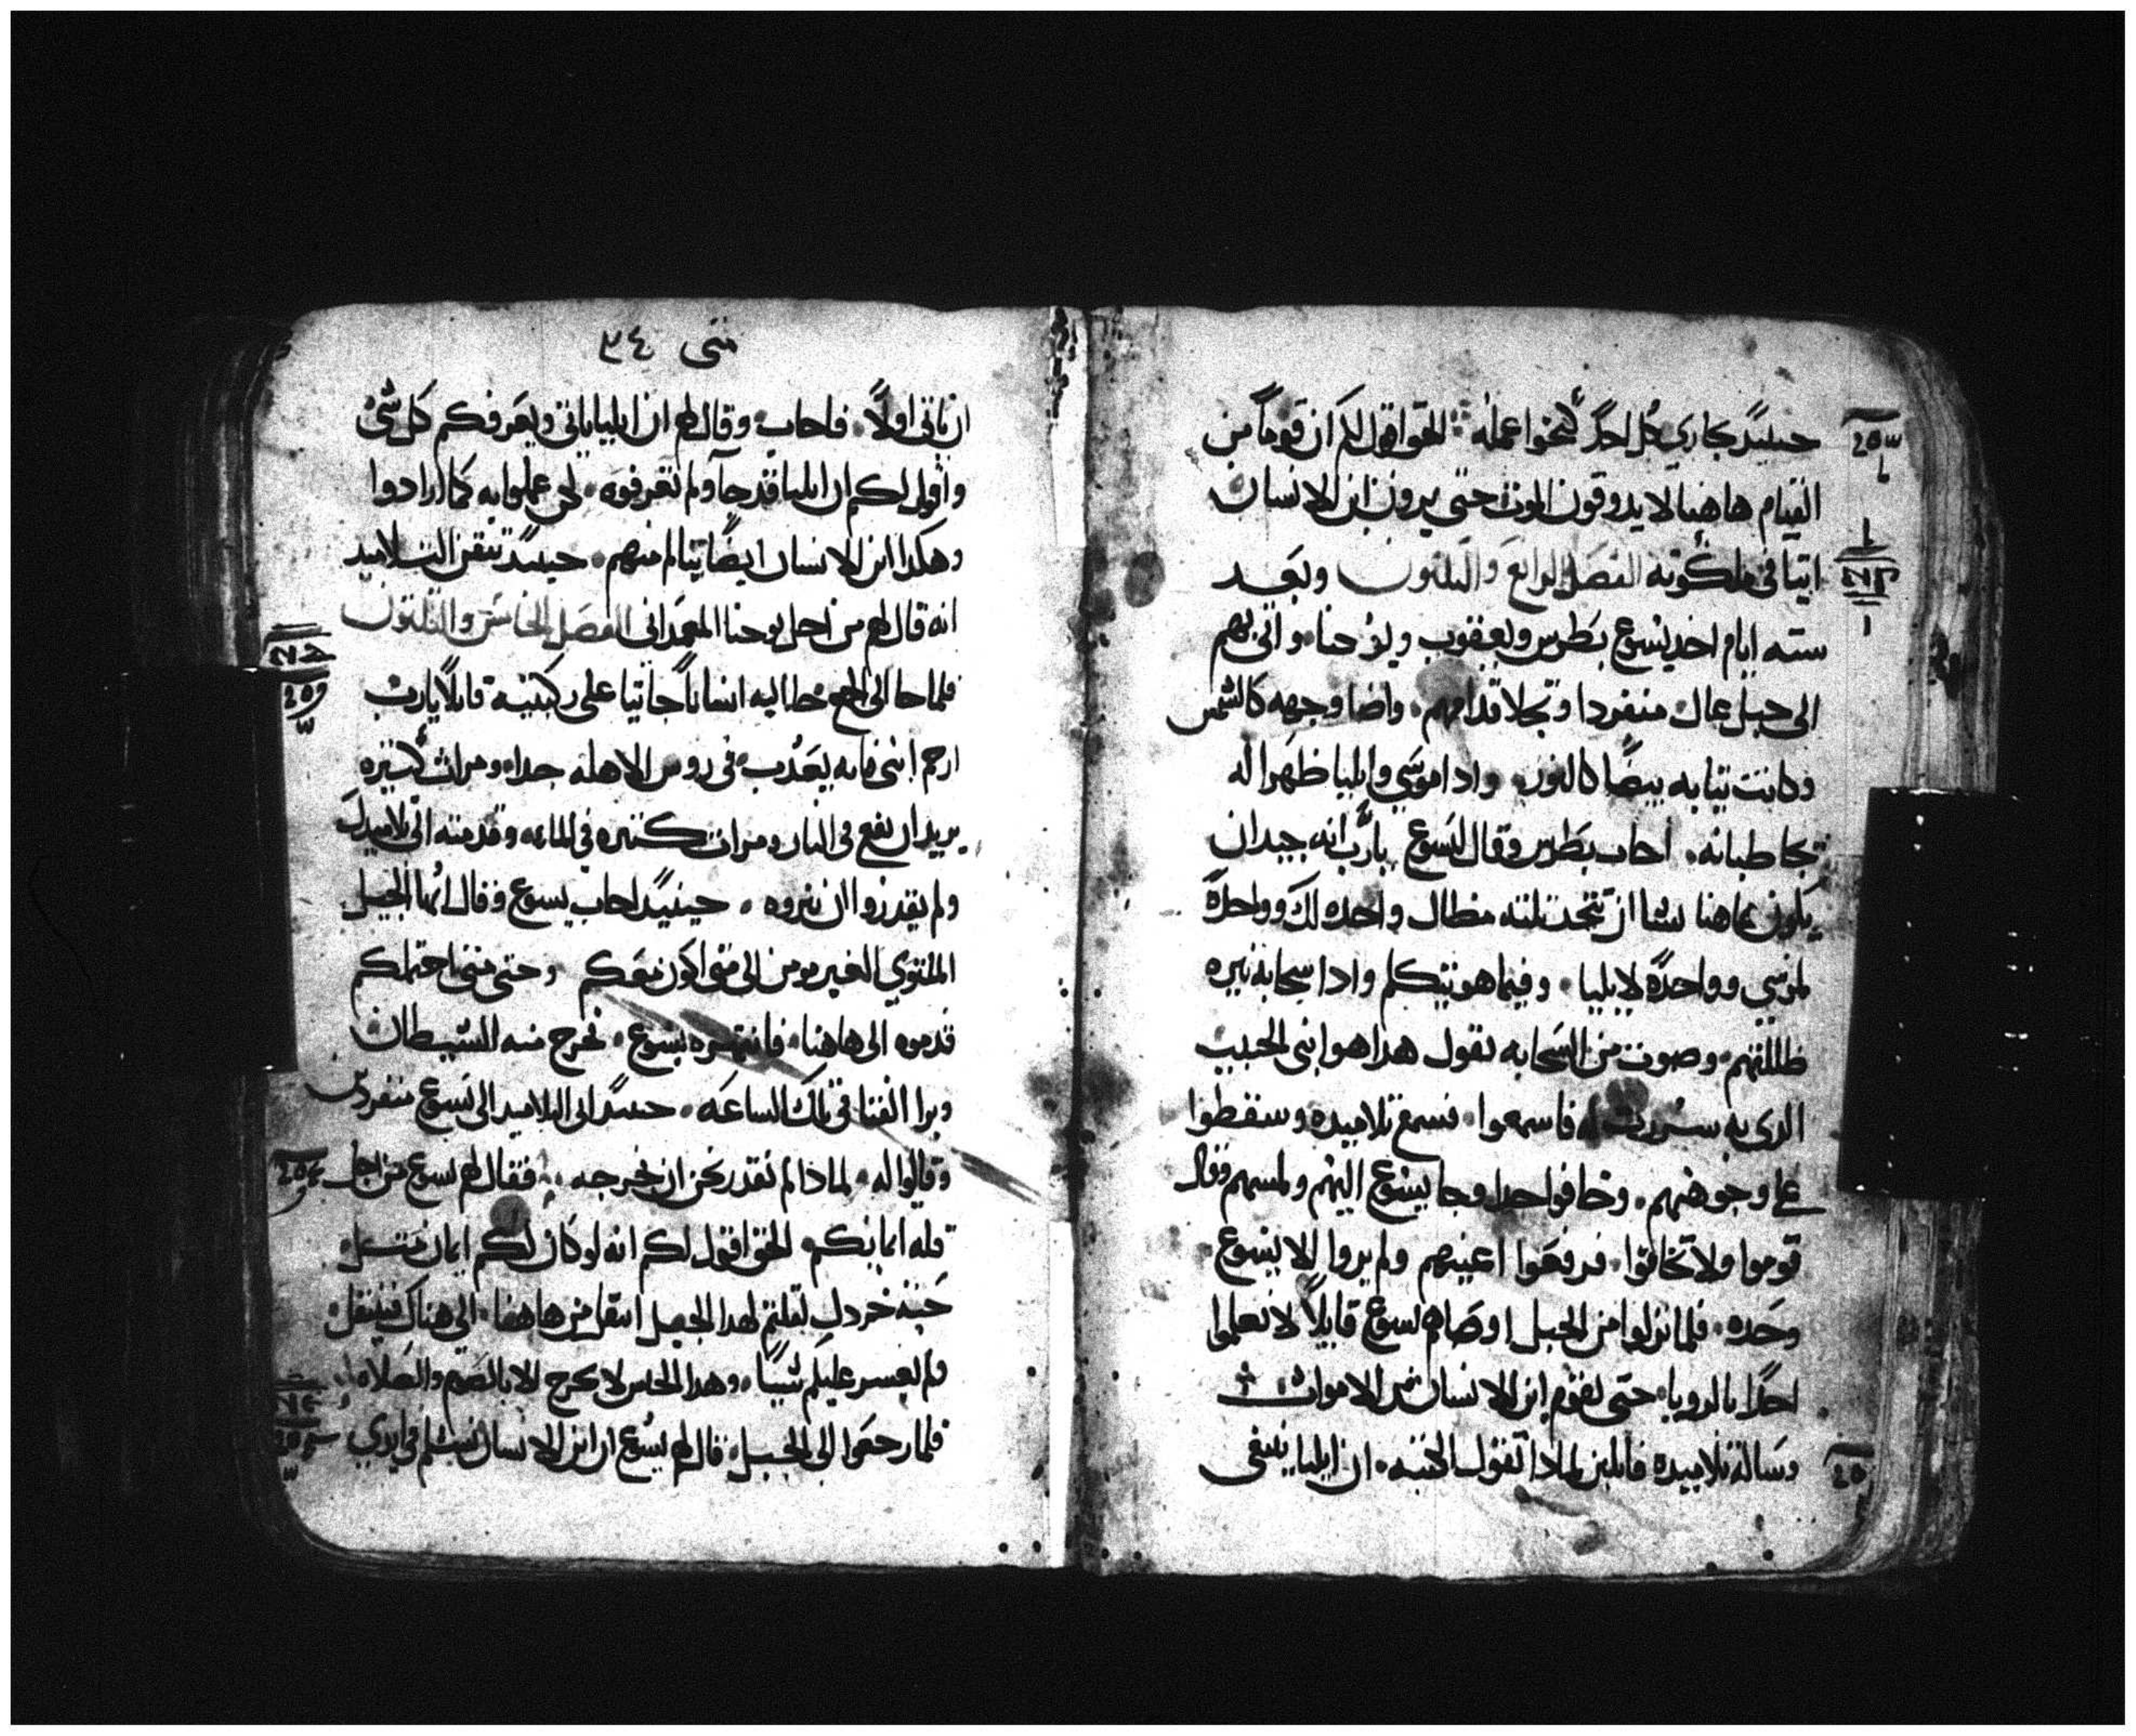 حينيد يجاري كل احد كنحوا عمله الحق اقول لكم ان قوماً من
القيام هاهنا لا يدوقون الموت حتى يرون ابن الانسان
اتيا في ملكوته الفصل الرابع والتلتون وبعد
سته ايام اخد يسوع بطرس ويعقوب ويوحنا واتى بهم
الى جبل عال منفردا وتجلا قدامهم واضا وجهه كالشمس
وكانت تيابه بيضا كالنور وادا موسي وايليا ظهرا له
يخاطبانه اجاب بطرس وقال ليسوع يارب انه جيد ان
يكون هاهنا تشا ان نتخد تلته مظال واحده لك وواحدة
لموسي وواحدة لايليا وفيما هو يتكلم وادا سحابه نيره
ظللتهم وصوت من السحابه يقول هدا هو ابني الحبيب
الدى به سررت له فاسمعوا فسمع تلاميده وسقطوا
على وجوههم وخافوا جدا وجا يسوع اليهم ولمسهم وقال
قوموا ولا تخافوا فرفعوا اعينهم ولم يروا الا يسوع
وحده فلما نزلوا من الجبل اوصاهم يسوع قايلاً لا تعلموا
احدا بالرويا حتى يقوم ابن الانسان من الاموات
وساله تلاميده قايلين لمادا تقول الكتبه ان ايليا ينبغى
متى ٣٤
ان ياتى اولاً فاجاب وقال لهم ان ايليا ياتى ويعرفكم كل شى
واقول لكم ان ايليا قد جآ ولم تعرفوه لكن عملوا به كما ارادوا
وهكدا ابن الانسان ايضاً يتالم منهم حينيد تيقن التلاميد
انه قال لهم من اجل يوحنا المعمدانى الفصل الخامس والتلتون
فلما جا الى الجمع جا اليه انساناً جاتيا على ركبتيه قايلاً يارب
ارحم ابنى فانه يعدب في روس الاهله جدا ومرات كتيره
يريد ان يقع فى النار ومرات كتيره في الماء وقدمته الى تلاميدك
ولم يقدروا ان يبروه حينيد اجاب يسوع وقال ايها الجيل
الملتوي الغير مومن الى متى اكون معكم وحتى متى احتملكم
قدموه الى هاهنا فانتهره يسوع فخرج منه الشيطان
وبرا الفتا في تلك الساعه حينيد اتى التلاميد الى يسوع منفردين
وقالوا له لمادا لم نقدر نحن ان نخرجه فقال لهم يسوع من اجل
قله ايمانكم الحق اقول لكم انه لو كان لكم ايمان متل
حبه خردل لقلتم لهدا الجبل انتقل من هاهنا الى هناك فينتقل
ولم يعسر عليكم شياً وهدا الجنس لا يخرج الا بالصوم والصلاه
فلما رجعوا الى الجليل قال لهم يسوع ان ابن الانسان يسلم في ايدي